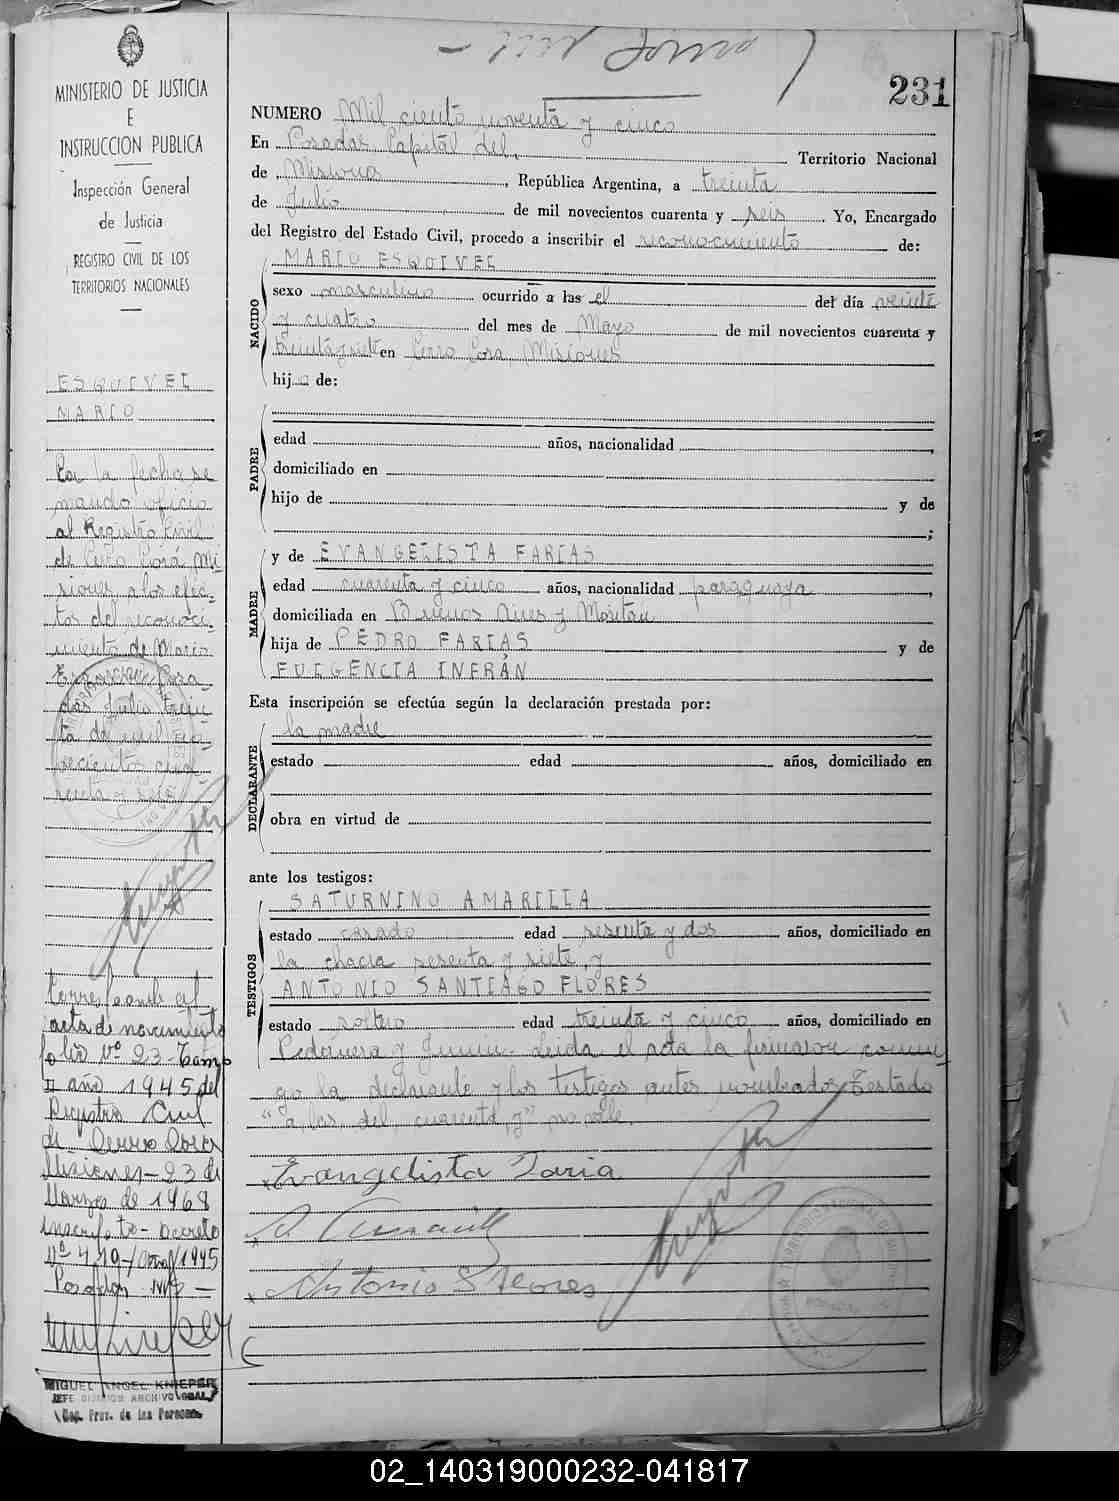 MINISTERIO DE JUSTICIA
E
INSTRUCCION PUBLICA
Inspección General
de Justicia
REGISTRO CIVIL DE LOS
TERRITORIOS NACIONALES
ESQUIVEL
MARIO
En la fecha se
mandó oficio
al Registro Civil
de Cerro Corá Mi-
siones a los efec-
tos del reconoci-
miento de Mario
Esquivel Posa-
das Julio trein-
ta de mil no-
vecientos cua-
renta y seis
Corresponde al
acta de nacimiento
folio Nº 23 - Tomo
II año 1945 del
Registro Civil
de Cerro Cora
Misiones - 23 de
Marzo de 1968
Inscripto - Decreto
Nº 410 1945
Posadas
MIGUEL ANGEL KNIEPER
JEFE DIVISION ARCHIVO GRAL.
Reg. Prov. de las Personas
231
NUMERO Mil ciento noventa y cinco
En Posadas Capital del Territorio Nacional
de Misiones, República Argentina, a treinta
de Julio de mil novecientos cuarenta y seis. Yo, Encargado
del Registro del Estado Civil, procedo a inscribir el reconocimiento de:
NACIDO
MARIO ESQUIVEL
sexo masculino ocurrido a las el del día veinte
y cuatro del mes de Mayo de mil novecientos cuarenta y
treinta y siete en Cerro Cora, Misiones
hijo de:
PADRE
edad años, nacionalidad
domiciliado en
hijo de y de
;
MADRE
y de EVANGELISTA FARIAS
edad cuarenta y cinco años, nacionalidad paraguaya,
domiciliada en Buenos Aires y Moritan
hija de PEDRO FARIAS y de
FULGENCIA INFRÁN
Esta inscripción se efectúa según la declaración prestada por:
DECLARANTE
la madre
estado edad años, domiciliado en
obra en virtud de
ante los testigos:
TESTIGOS
SATURNINO AMARILLA
estado casado edad sesenta y dos años, domiciliado en
la chacra sesenta y siete, y
ANTONIO SANTIAGO FLORES
estado soltero edad treinta y cinco años, domiciliado en
Pedernera y Junin. Leida el acta la firmaron conmi-
go la declarante y los testigos antes nombrados. Testado
"a las, del, cuarenta, y" no vale.
Evangelista Faria
Antonio S Flores
02_140319000232-041817